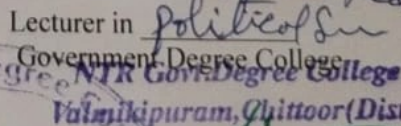 Lecturer in Political Sc
Government Degree College
NTR Govt Degree College
Valmikipuram, Chittoor (Dist